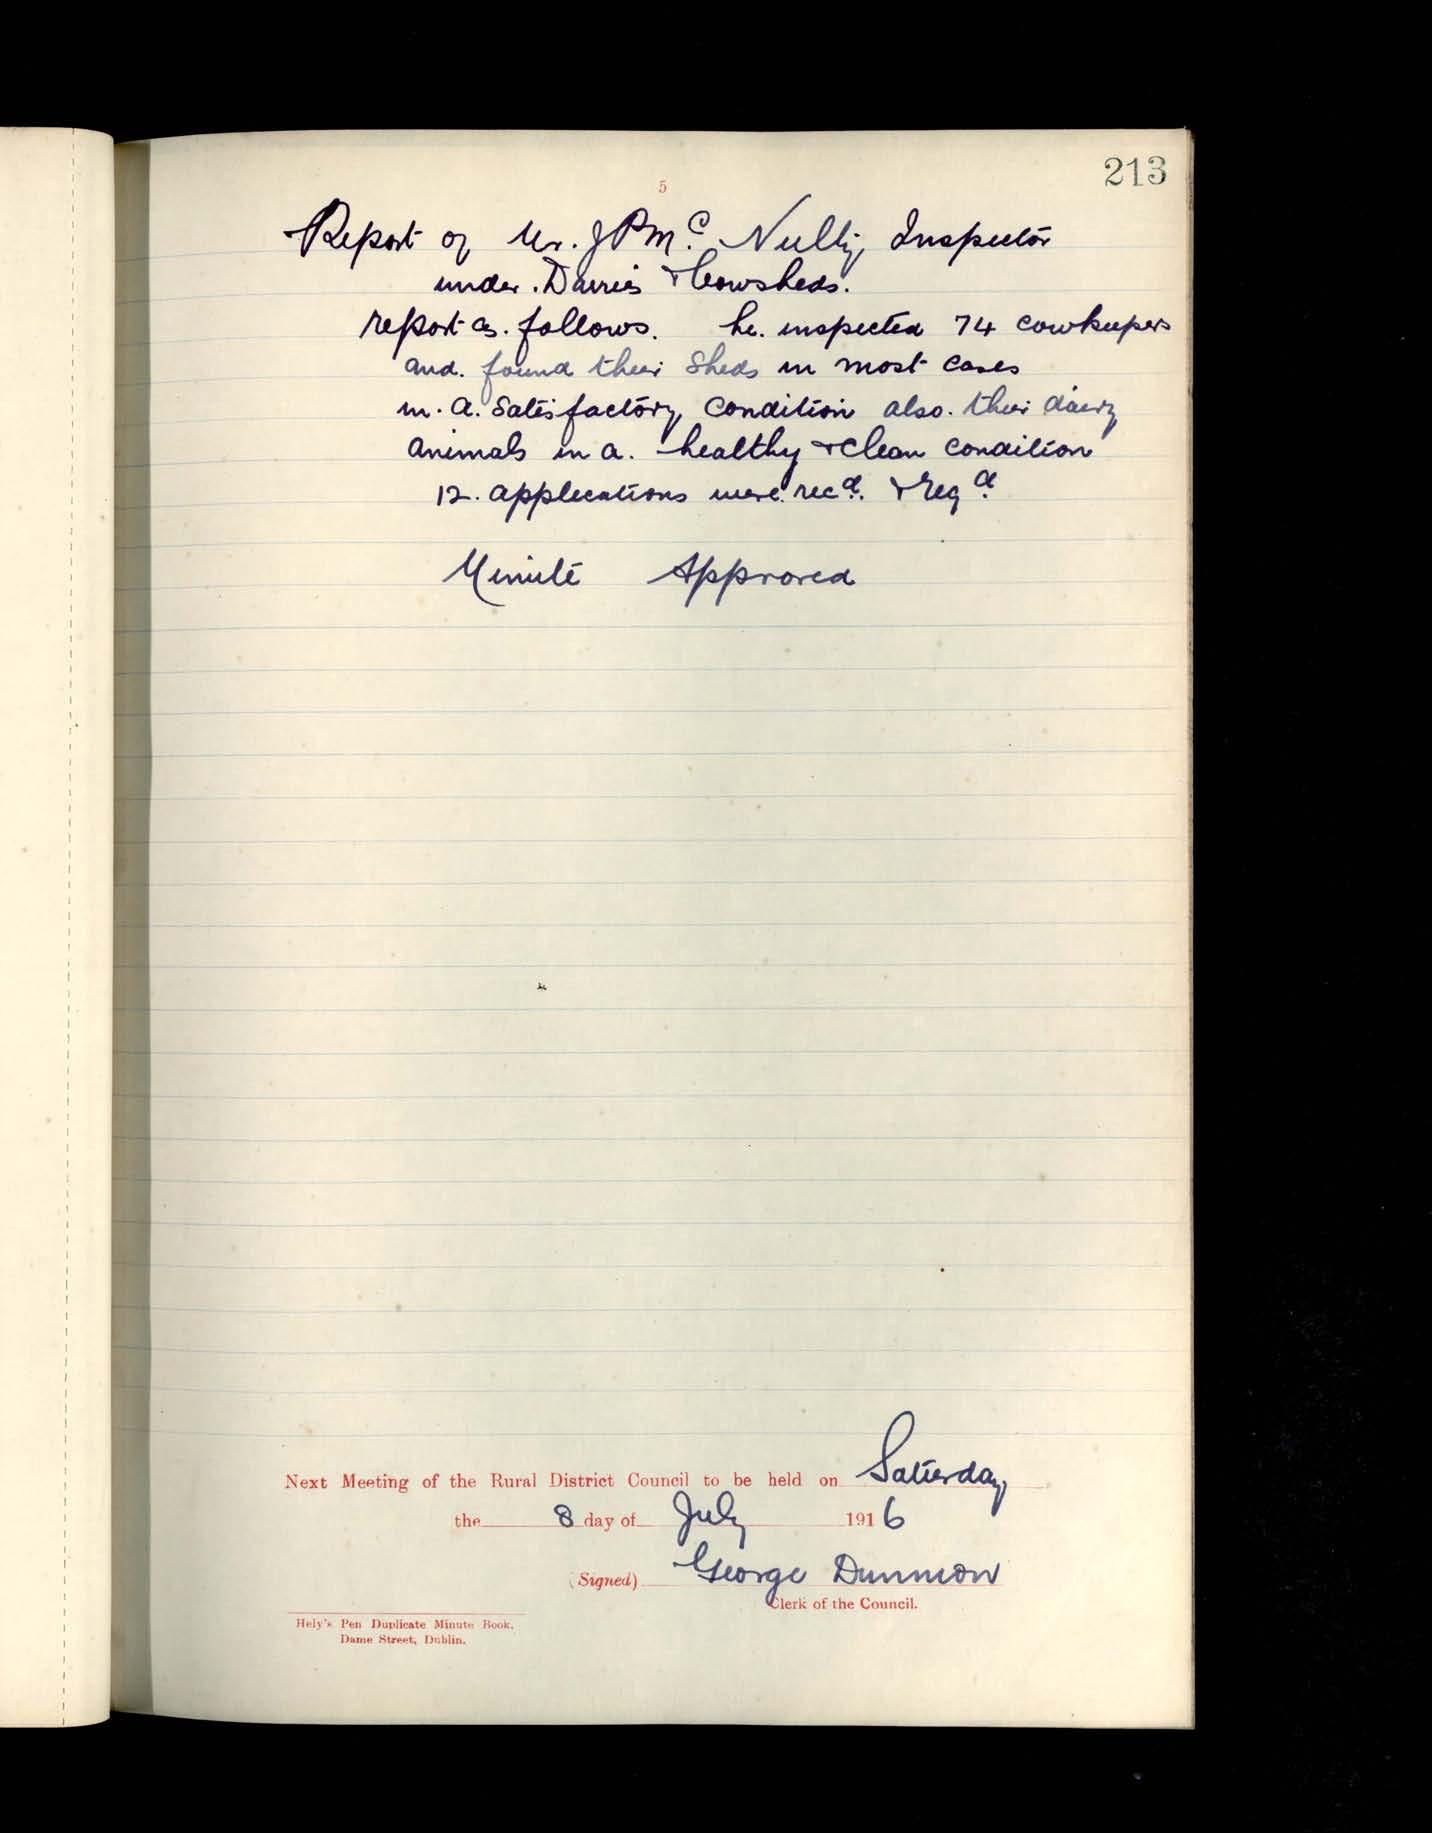 213
5
Report of Mr. J P McNulty Inspector
under Dairies & Cowsheds.
report as follows. he inspected 74 cowkeepers
and found their Sheds in most cases
in a satisfactory condition also their dairy
animals in a healthy & clean condition
12 applications were recd. & regd.
Minute Approved
Next Meeting of the Rural District Council to be held on Saturday
the 8 day of July 1916
(Signed) George Dunnion
Clerk of the Council.
Hely's Pen Duplicate Minute Book.
Dame Street, Dublin.